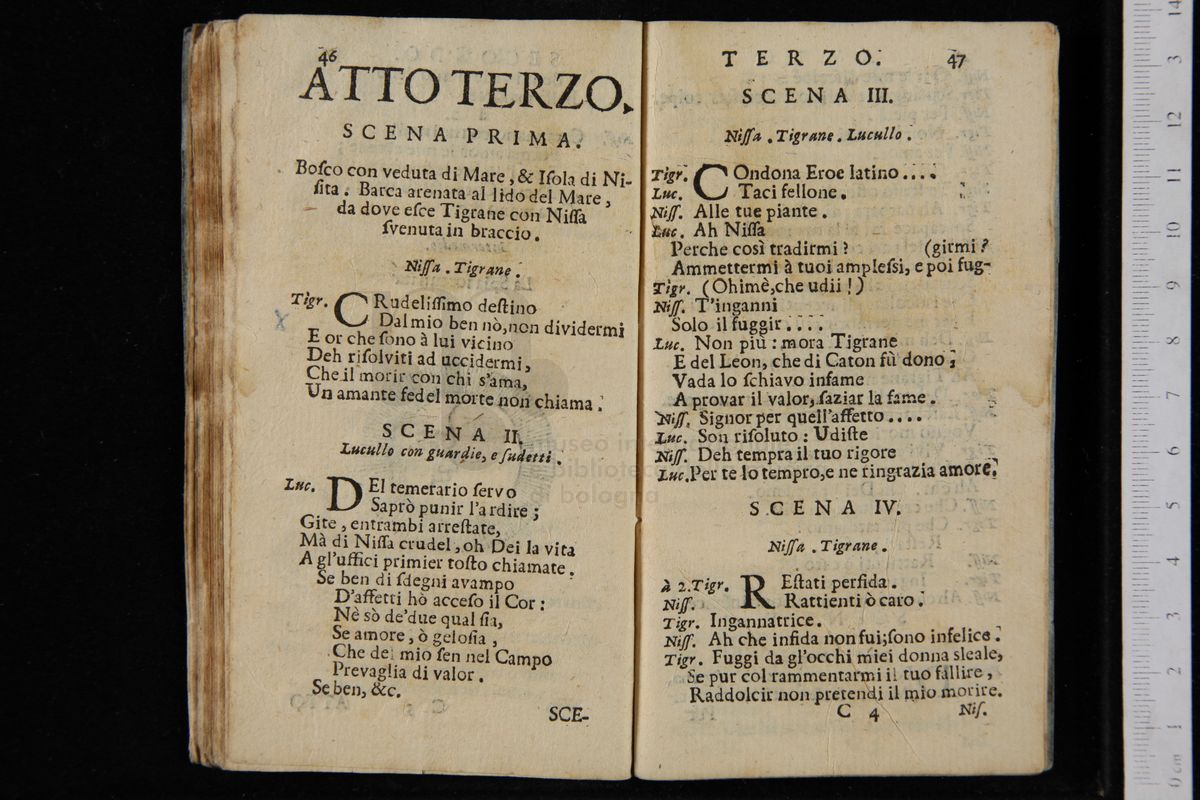 46
ATTO TERZO.
SCENA PRIMA.
Boſco con veduta di Mare, & Iſola di Ni-
ſita. Barca arenata al lido del Mare,
da dove eſce Tigrane con Niſſa
ſvenuta in braccio.
Niſſa. Tigrane.
Tigr. CRudeliſſimo deſtino
Dal mio ben nò, non dividermi
E or che ſono à lui vicino
Deh riſolviti ad uccidermi,
Che il morir con chi s'ama,
Un amante fedel morte non chiama.
SCENA II.
Lucullo con guardie, e ſudetti.
Luc. DEl temerario ſervo
Saprò punir l'ardire;
Gite, entrambi arreſtate,
Mà di Niſſa crudel, oh Dei la vita
A gl'uffici primier toſto chiamate.
Se ben di ſdegni avampo
D'affetti hò acceſo il Cor:
Nè sò de'due qual ſia,
Se amore, ò geloſia,
Che del mio ſen nel Campo
Prevaglia di valor.
Se ben, &c.
SCE-
TERZO. 47
SCENA III.
Niſſa. Tigrane. Lucullo.
Tigr. COndona Eroe latino....
Luc. Taci fellone.
Niſſ. Alle tue piante.
Luc. Ah Niſſa
Perche così tradirmi? (girmi?
Ammettermi à tuoi ampleſsi, e poi fug-
Tigr. (Ohimè, che udii!)
Niſſ. T'inganni
Solo il fuggir....
Luc. Non più: mora Tigrane
E del Leon, che di Caton fù dono;
Vada lo ſchiavo infame
A provar il valor, ſaziar la fame.
Niſſ. Signor per quell'affetto....
Luc. Son riſoluto: Udiſte
Niſſ. Deh tempra il tuo rigore
Luc. Per te lo tempro, e ne ringrazia amore.
SCENA IV.
Niſſa. Tigrane.
à 2. Tigr. REſtati perfida.
Niſſ. Rattienti ò caro.
Tigr. Ingannatrice.
Niſſ. Ah che infida non fui; ſono infelice.
Tigr. Fuggi da gl'occhi miei donna sleale,
Se pur col rammentarmi il tuo fallire,
Raddolcir non pretendi il mio morire.
C 4 Niſ.
museo
biblioteca
di bologna
0 cm 1 2 3 4 5 6 7 8 9 10 11 12 3 14